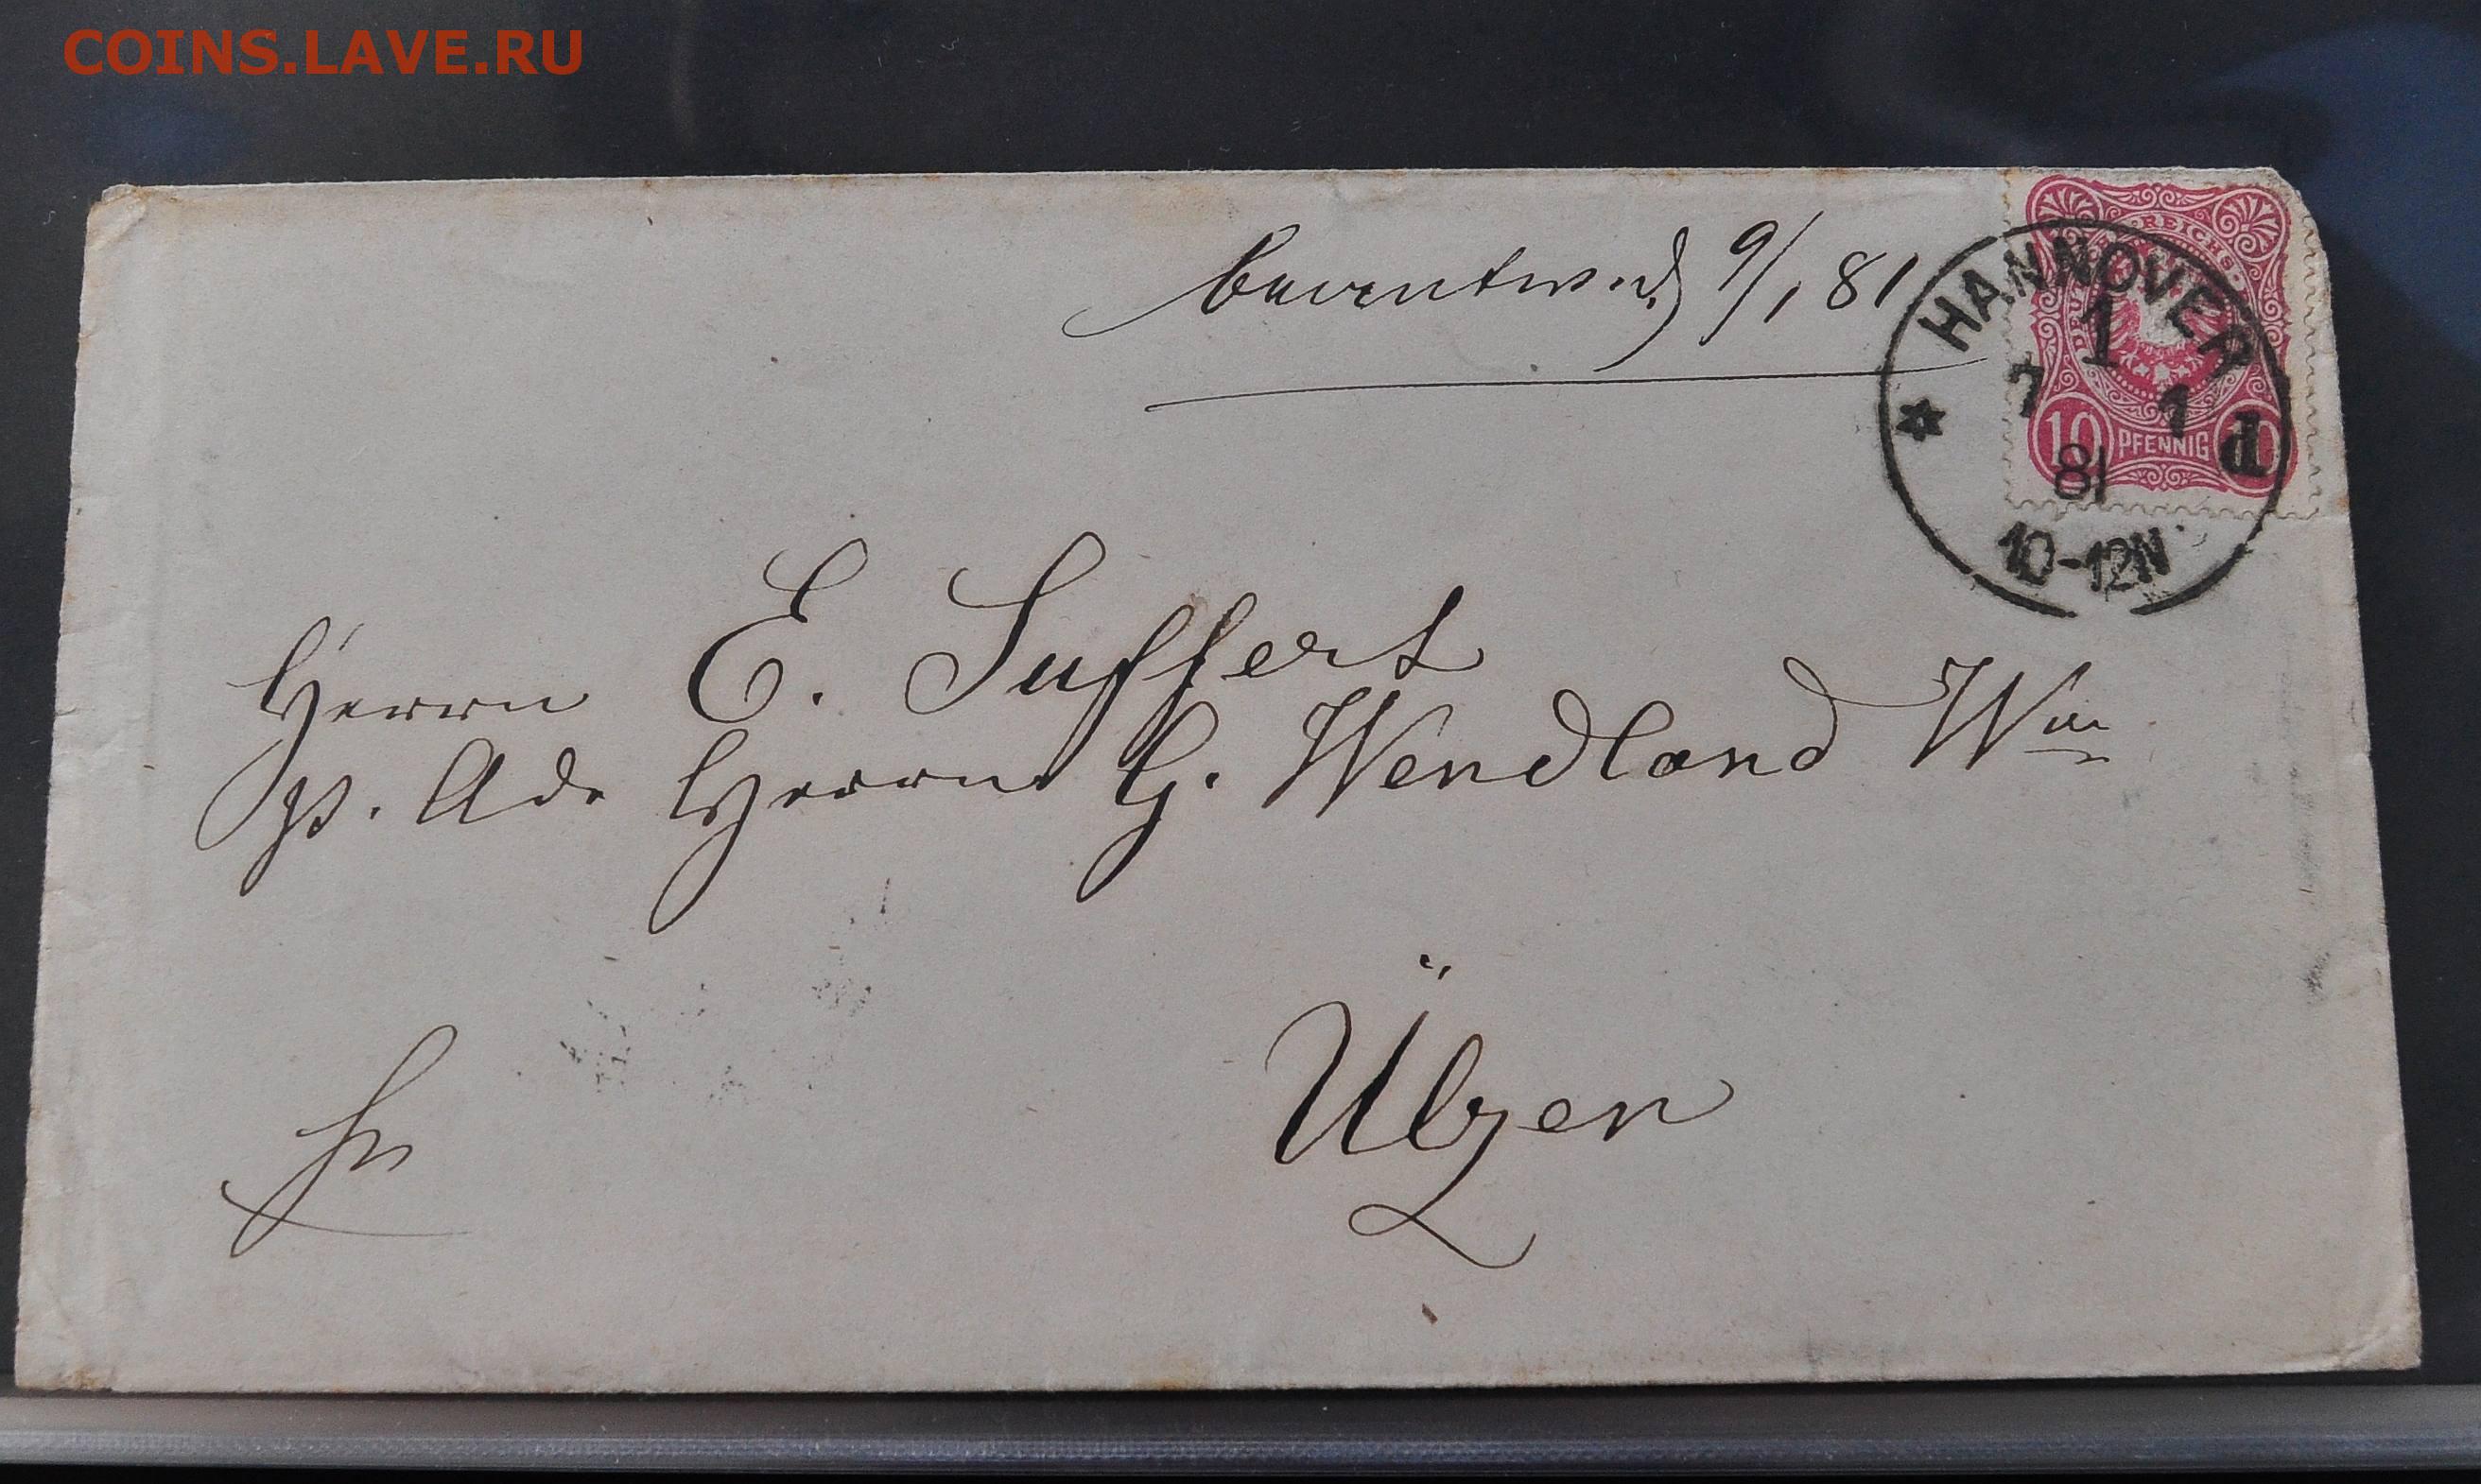 COINS.LAVE.RU
beantw.d. 9/1 81
REICHS
HANNOVER
1
7 1
d
10 PFENNIG
81
10-12N
Herrn E. Suffert
p. Ade Herrn G. Wendland Wwe
Ülzen